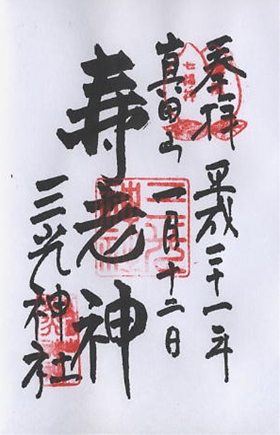 奉拝
平成二十一年
一月十二日
真田山
七福神
寿老神
三光神社